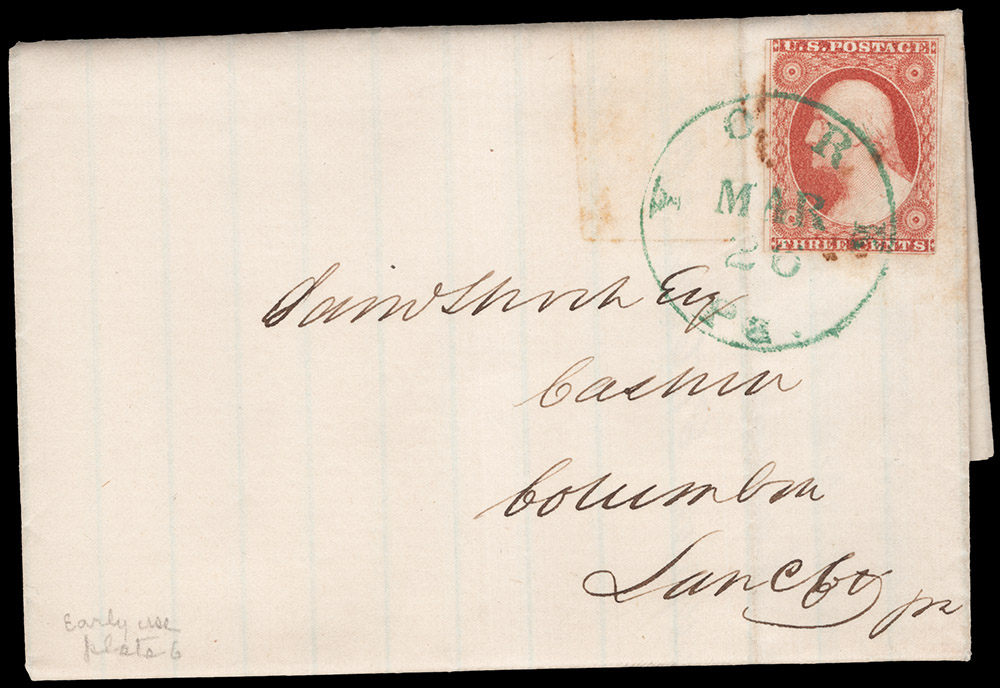 U.S. POSTAGE
THREE CENTS
YORK
MAR
26
Pa.
Saml Shoch Esq
Cashier
Columbia
Lanc Co
pa
Early use
plate 6